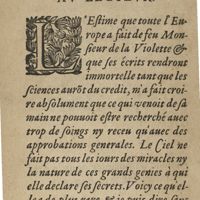 AV LECTEVR.
L'Estime que toute l'Eu-
rope a fait de feu Mon-
sieur de la Violette &
que ses écrits rendront
immortelle tant que les
sciences aurõt du credit, m'a fait croi-
re absolument que ce qui venoit de sa
main ne pouuoit estre recherché auec
trop de soings ny receu qu'auec des
approbations generales. Le Ciel ne
fait pas tous les iours des miracles ny
la nature de ces grands genies à qui
elle declare ses secrets. Voicy ce qu'el-